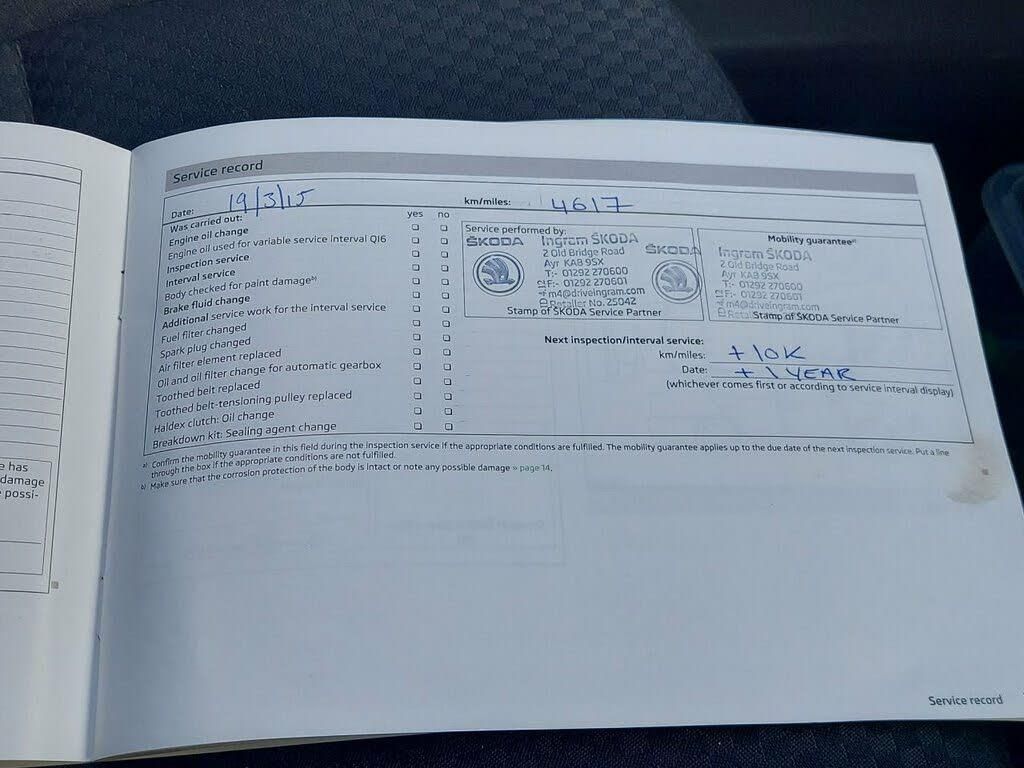 Service record
Date: 19/3/15 km/miles: 4617
Was carried out: yes no
Engine oil change
Engine oil used for variable service interval QI6
Inspection service
Interval service
Body checked for paint damage b)
Brake fluid change
Additional service work for the interval service
Fuel filter changed
Spark plug changed
Air filter element replaced
Oil and oil filter change for automatic gearbox
Toothed belt replaced
Toothed belt-tensioning pulley replaced
Haldex clutch: Oil change
Breakdown kit: Sealing agent change
Service performed by:
ŠKODA Ingram ŠKODA ŠKODA
2 Old Bridge Road
Ayr KA8 9SX
T:- 01292 270600
F:- 01292 270601
m4@driveingram.com
Retailer No. 25042
Stamp of ŠKODA Service Partner
Mobility guarantee a)
Ingram ŠKODA
2 Old Bridge Road
Ayr KA8 9SX
T:- 01292 270600
F:- 01292 270601
m4@driveingram.com
Stamp of ŠKODA Service Partner
Next inspection/interval service:
km/miles: +10K
Date: +1 YEAR
(whichever comes first or according to service interval display)
a) Confirm the mobility guarantee in this field during the inspection service if the appropriate conditions are fulfilled. The mobility guarantee applies up to the due date of the next inspection service. Put a line
through the box if the appropriate conditions are not fulfilled.
b) Make sure that the corrosion protection of the body is intact or note any possible damage » page 14.
e has
damage
possi-
Service record